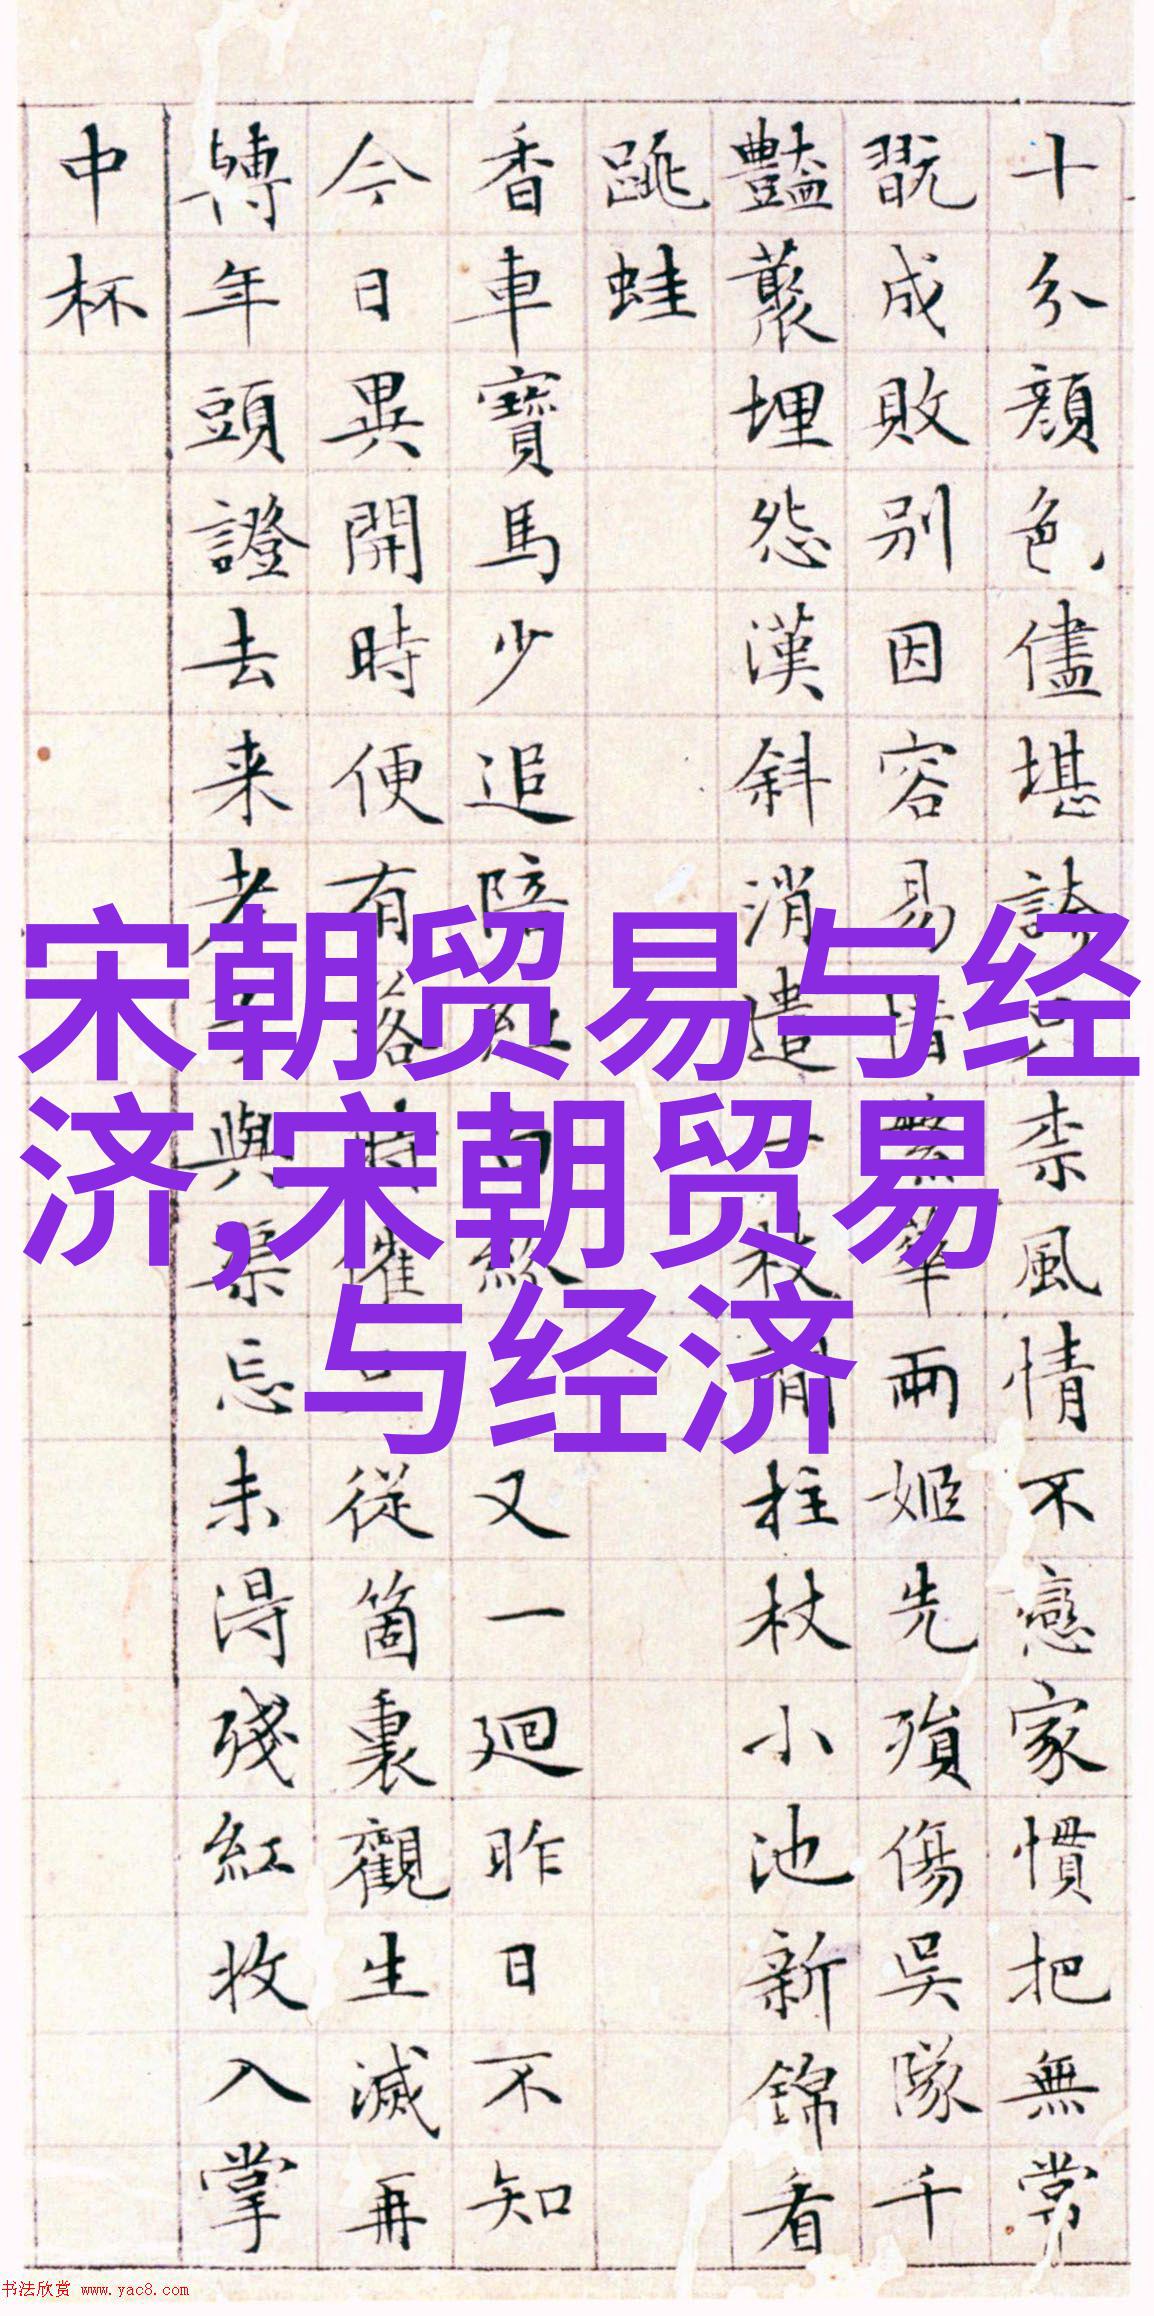 十分顏色儘堪誇柰風情不戀家慣把無常
翫成敗别因容易惜繁華兩姬先殞傷吳隊千
豔叢埋怨漢斜消遣一枝閒柱杖小池新錦看
跳蛙
香車寶馬少追陪紅白紛又一廻昨日不知
今日異開時便有落時催從箇裏觀生滅再
轉年頭證去来老與渠忘未得殘紅收入掌
中杯
宋朝贸易与经
济,宋朝贸易
与经济
书法欣赏 www.yac8.com